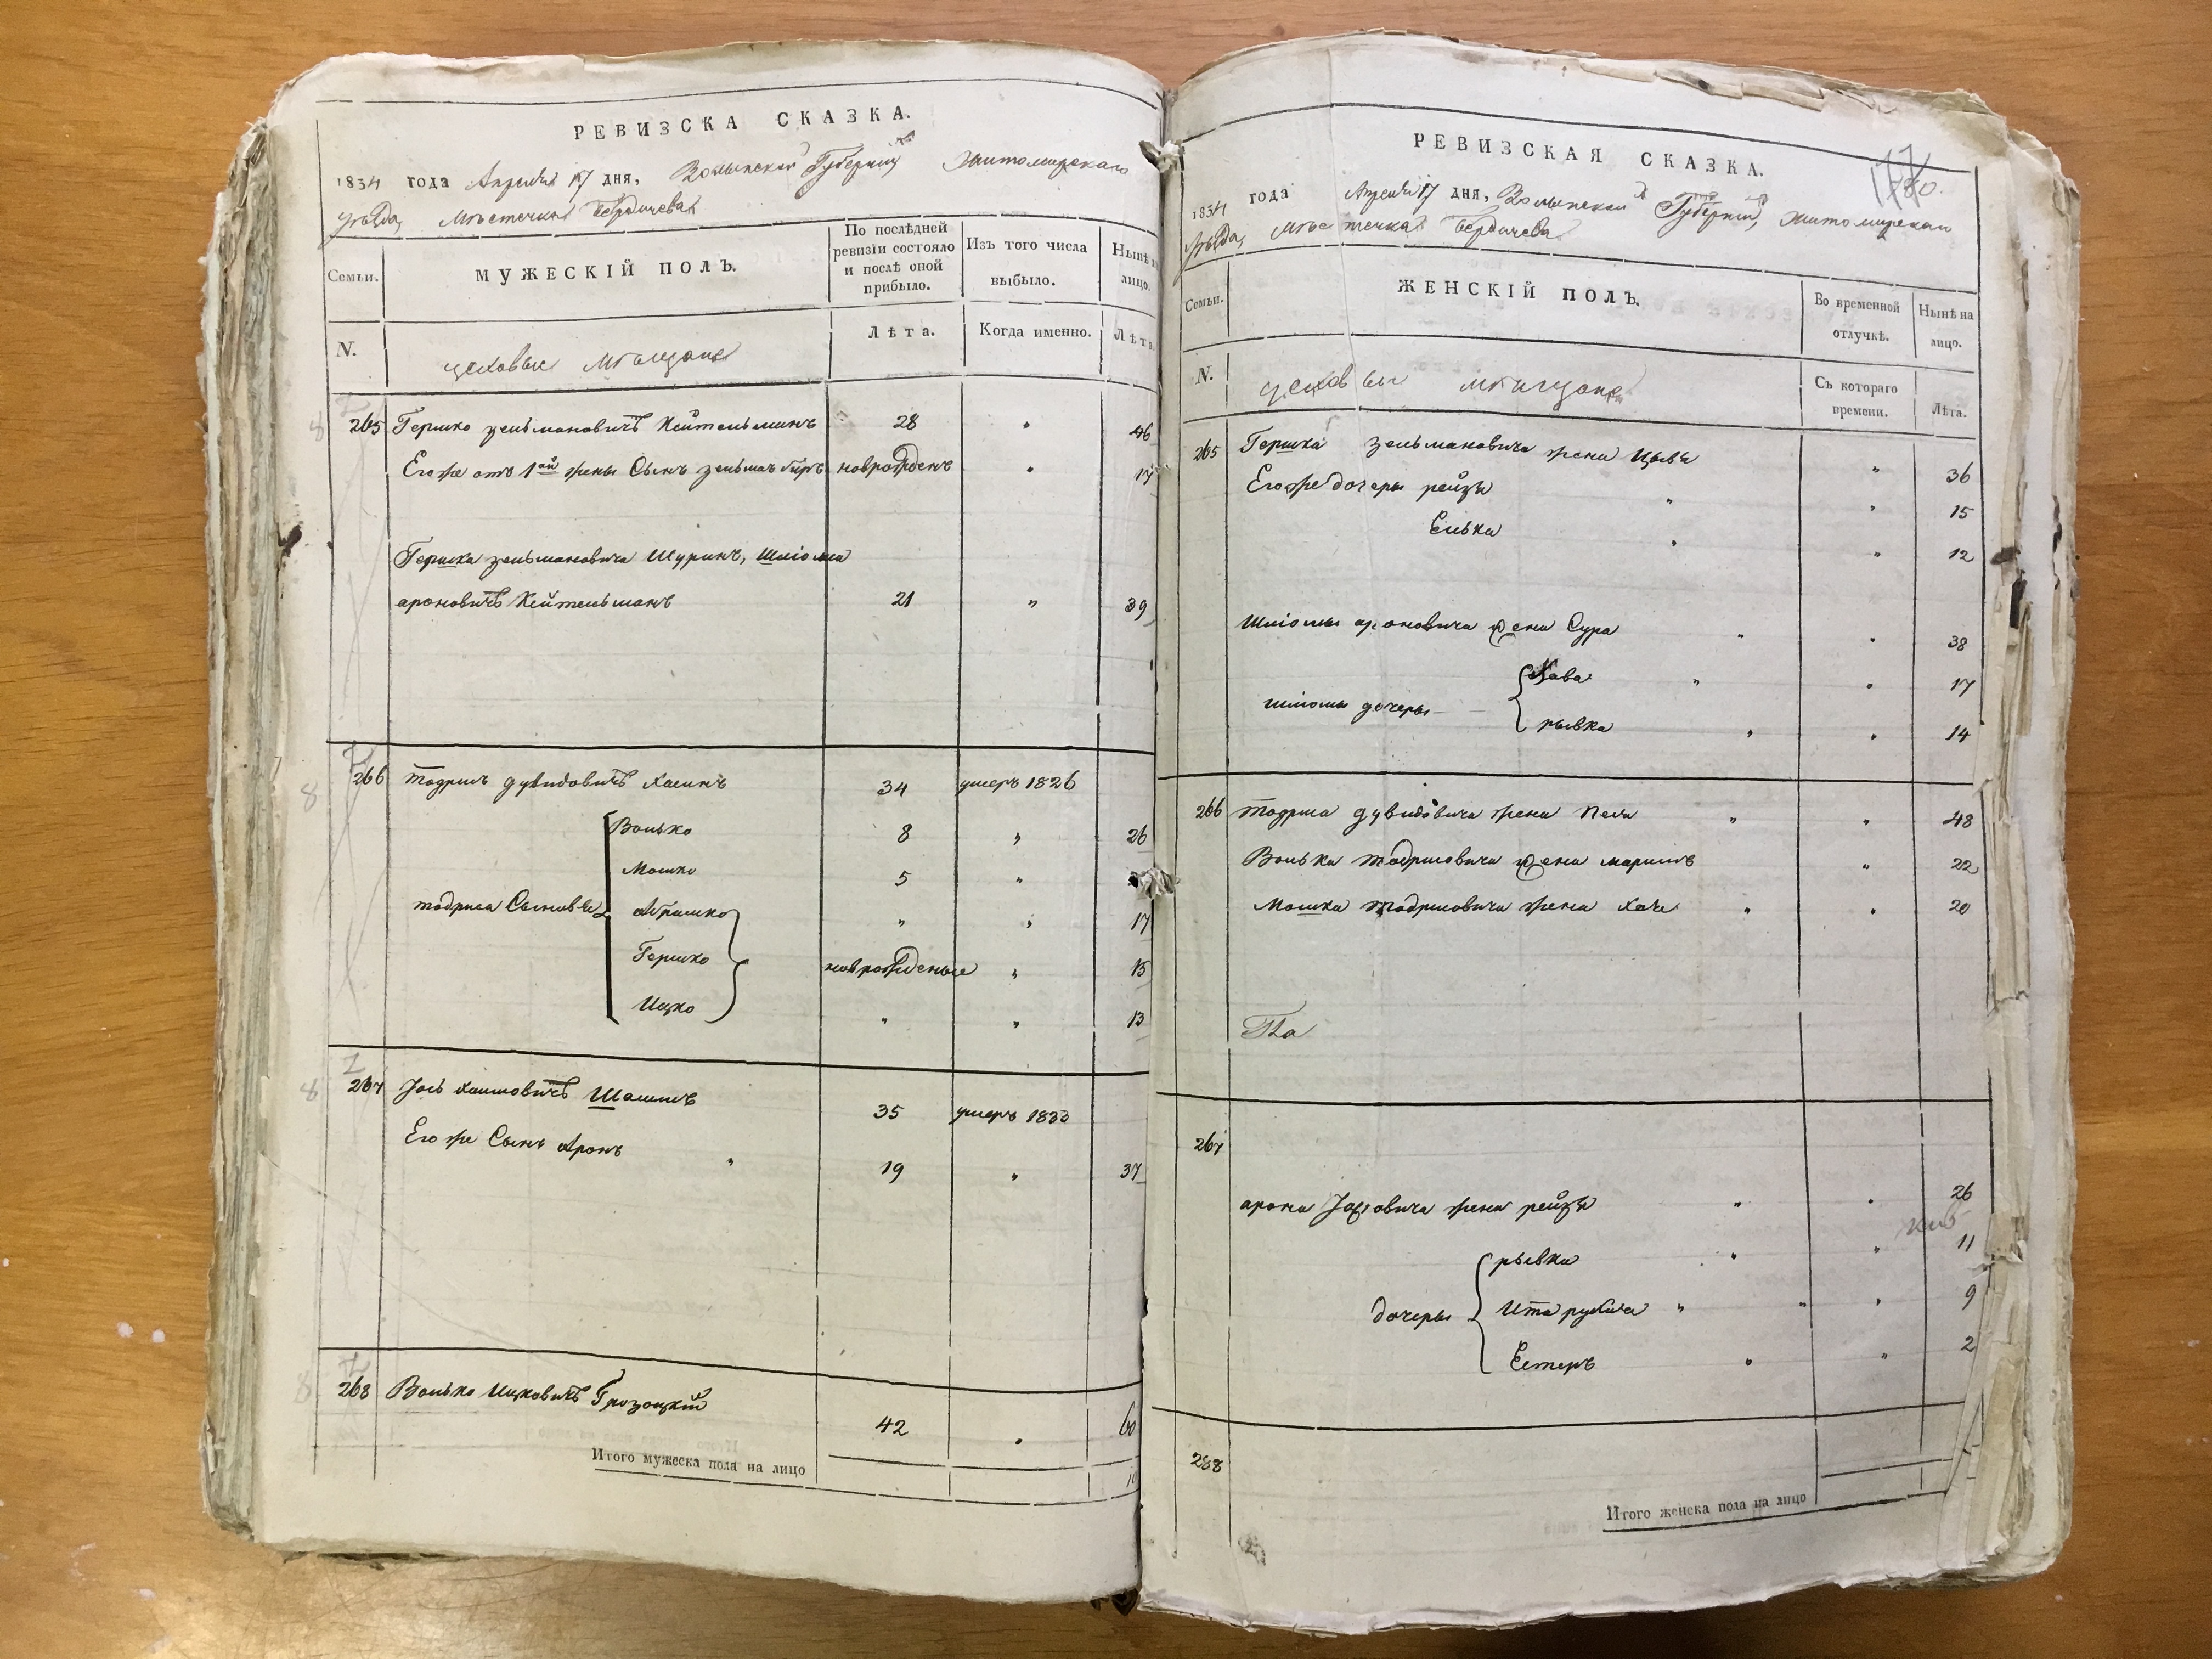 РЕВИЗСКА СКАЗКА.
1834 года Апреля 17 дня, Волынской Губернии Житомирскаго
уѣзда, Мѣстечка Бердичева
Семьи.
МУЖЕСКІЙ ПОЛЪ.
По послѣдней ревизіи состояло и послѣ оной прибыло.
Изъ того числа выбыло.
Нынѣ на лицо.
N.
цеховые мѣщане
Лѣта.
Когда именно.
Лѣта.
265 Гершко зельмановичъ Кейтельманъ 28 " 46
Его же отъ 1ой жены Сынъ зельманъ беръ новрожденъ " 17
Гершка зельмановича Шуринъ, Шліома
ароновичъ Кейтельманъ 21 " 39
266 тодрисъ дувидовичъ Хасинъ 34 умеръ 1826
Волько 8 " 26
Мошко 5 "
тодриса Сыновья Абрамко " " 17
Гершко новрожденые " 15
Ицко " " 13
267 Іось хаимовичъ 35 умеръ 1833
Его же Сынъ Аронъ " 19 " 37
268 Волько Ицковичъ Грозоцкій 42 " 60
Итого мужеска пола на лицо 10
РЕВИЗСКАЯ СКАЗКА.
1834 года Апреля 17 дня, Волынской Губерніи, Житомирскаго
уѣзда, Мѣстечка Бердичева
Семьи.
ЖЕНСКІЙ ПОЛЪ.
Во временной отлучкѣ.
Нынѣ на лицо.
N.
цеховые мѣщане
Съ котораго времени.
Лѣта.
265 Гершка зельмановича жена Цывя " 36
Его же дочеры рейзя " " 15
Елька " " 12
Шліомы ароновича жена Сура " " 38
Хава " " 17
шліомы дочеры
рывка " " 14
266 тодриса дувидовича жена Песя " " 48
Волька тодрисовича жена маримъ " 22
Мошка тодрисовича жена Хаче " " 20
267
арона Іосіовича жена рейзя " " 26
рывка " " 11
дочеры Ита рухля " " " 9
Естеръ " " 2
268
Итого женска пола на лицо